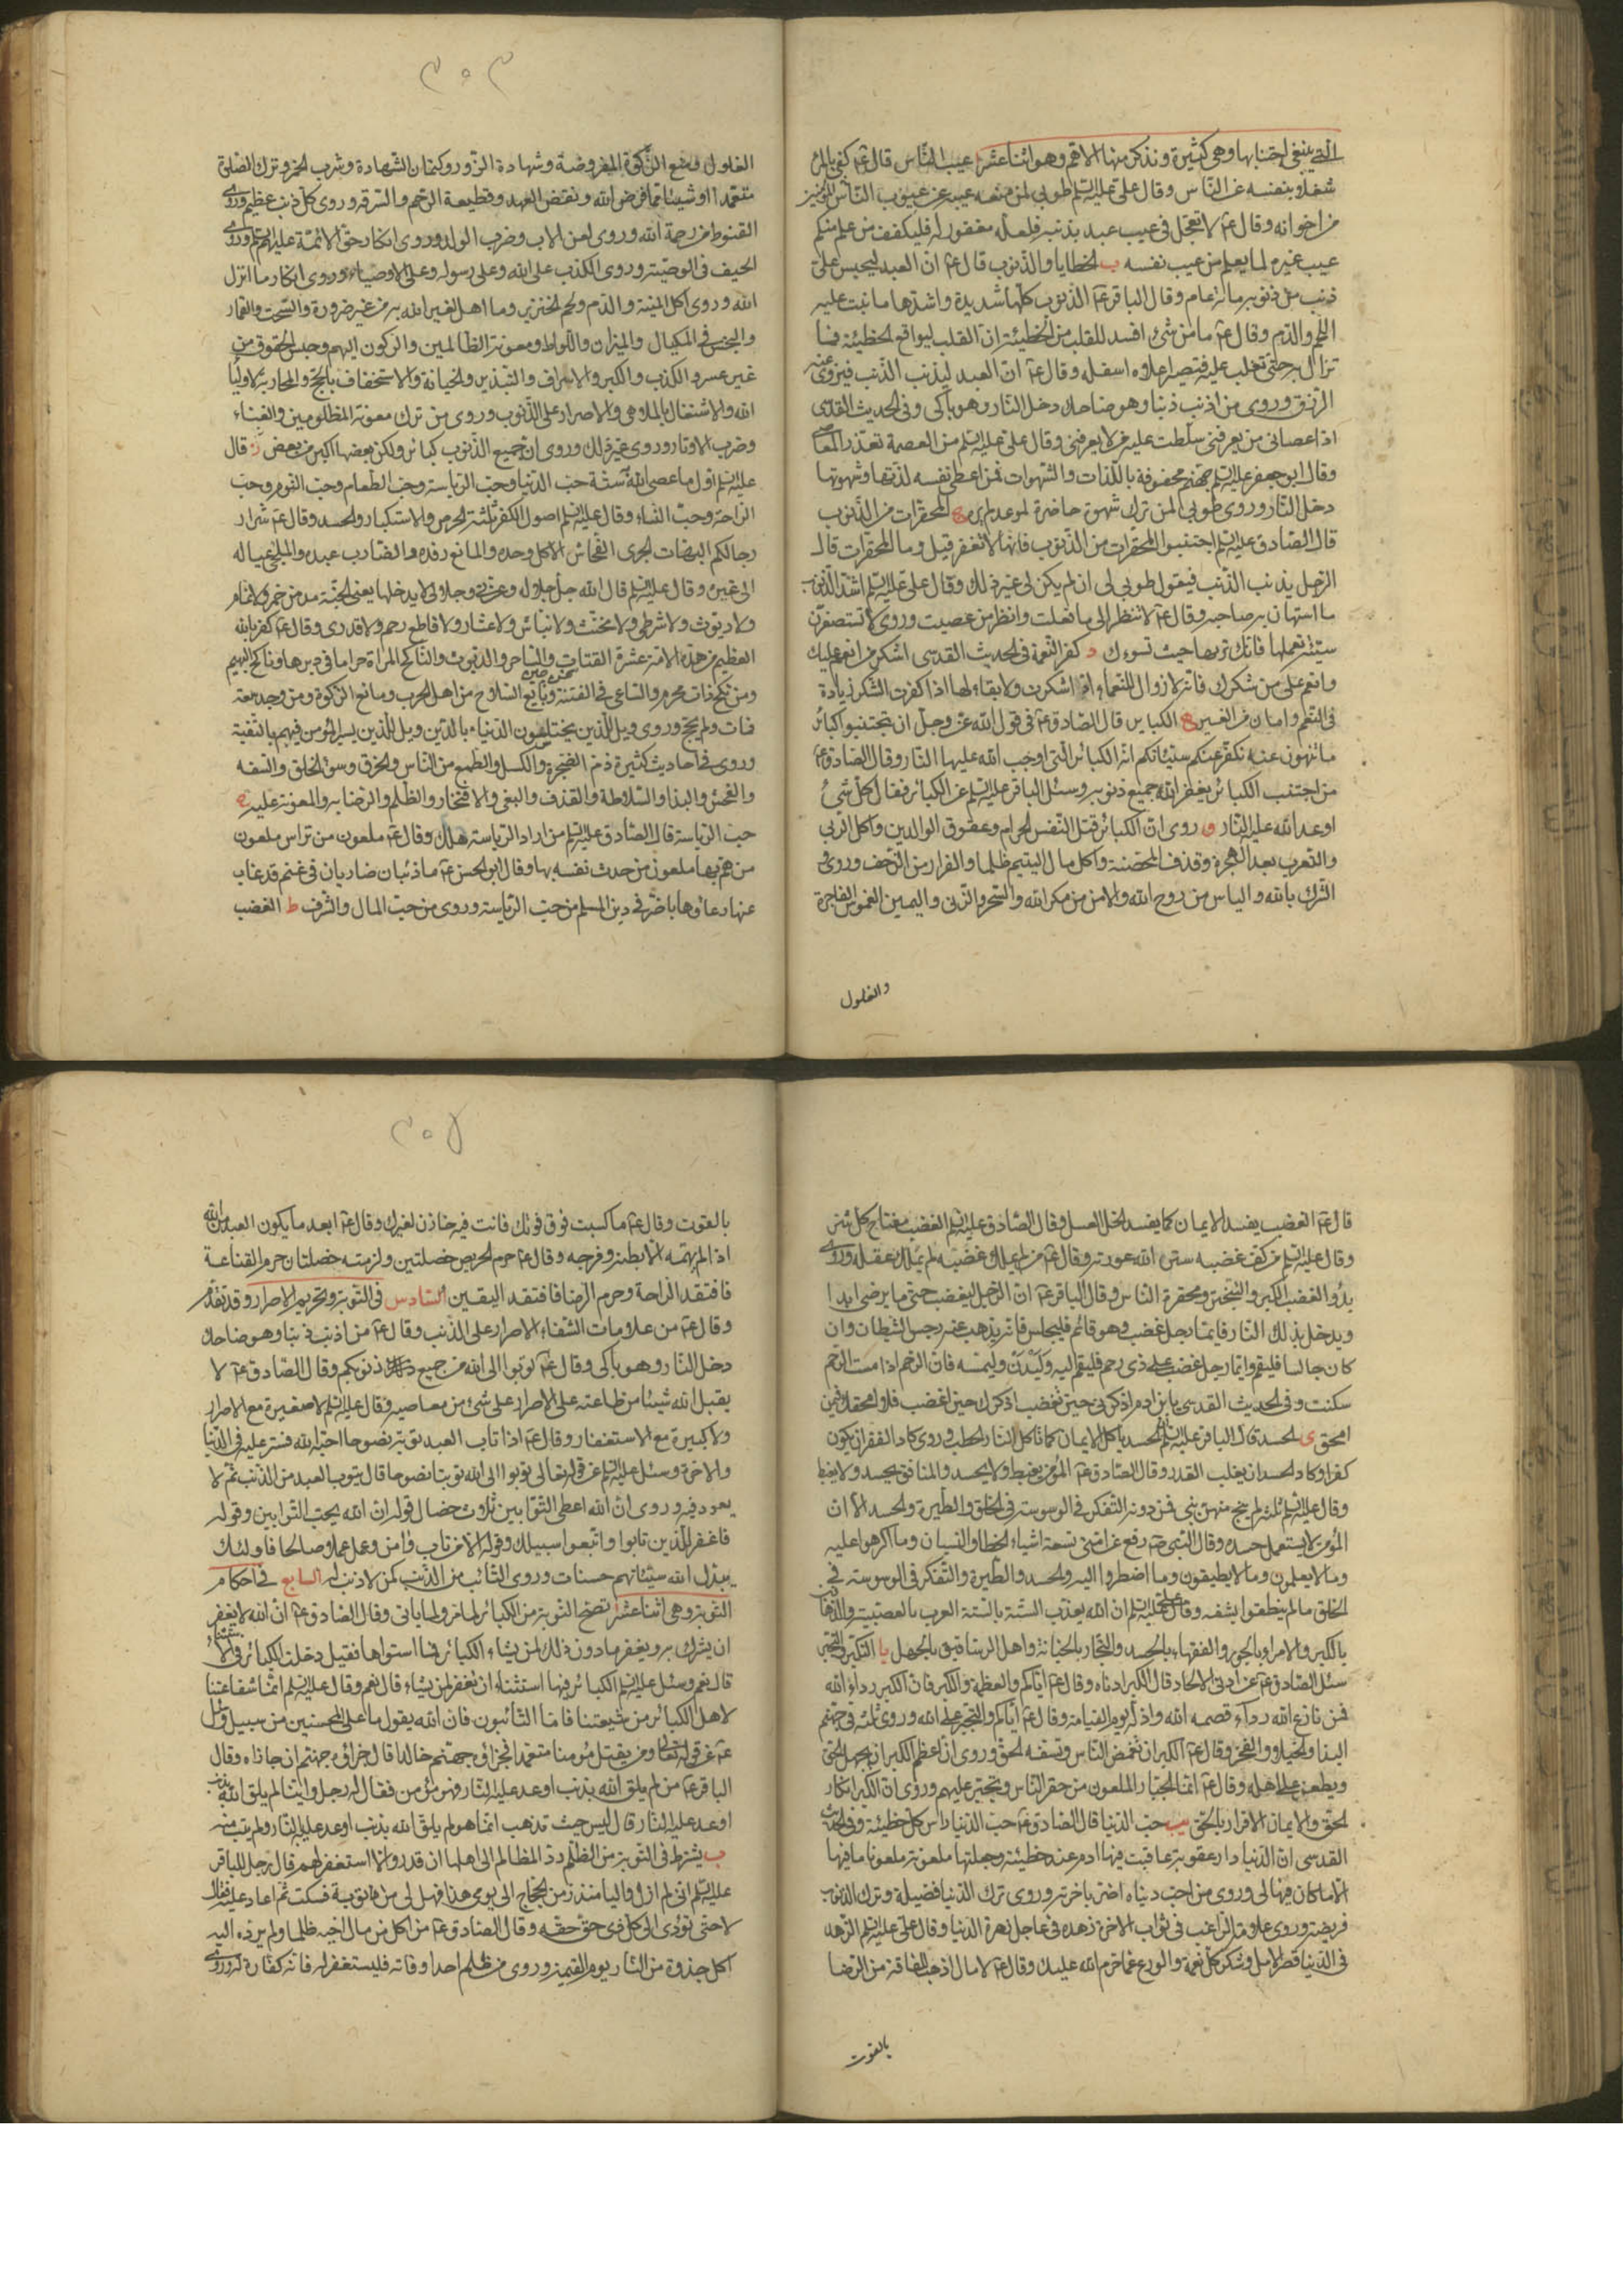 الّتي ينبغي اجتنابها وهي كثيرة ونذكر منها الاهم وهو اثنا عشر ا عيب الناس قال ع‍ كفى بالمرء
شغلا بنفسه عن الناس وقال علي عليه السلم طوبى لمن منعه عيبه عن عيوب الناس المؤمنين
من اخوانه وقال ع‍ لا تعجل في عيب عبد بذنبه فلعله مغفور له فليكفف من علم منكم
عيب غيره لما يعلم من عيب نفسه ب الخطايا والذنوب قال ع‍ ان العبد ليحبس على
ذنب من ذنوبه مائة عام وقال الباقر ع‍ الذنوب كلها شديدة واشدها ما نبت عليه
اللحم والدم وقال ع‍ ما من شئ افسد للقلب من الخطيئة ان القلب ليواقع الخطيئة فما
تزال به حتى تغلب عليه فيصير اعلاه اسفله وقال ع‍ ان العبد ليذنب الذنب فيزوى عنه
الرزق وروى من اذنب ذنبا وهو ضاحك دخل النار وهو باكى وفي الحديث القدسى
اذا عصانى من يعرفنى سلطت عليه من لا يعرفنى وقال علي عليه السلم من العصمة تعذر المعاصى
وقال ابو جعفر عليه السلم جهنم محفوفة باللذات والشهوات فمن اعطى نفسه لذتها وشهوتها
دخل النار وروى طوبى لمن ترك شهوة حاضرة لموعد لم يره ج المحقرات من الذنوب
قال الصادق عليه السلم اجتنبوا المحقرات من الذنوب فانها لا تغفر قيل وما المحقرات قال
الرجل يذنب الذنب فيقول طوبى لى ان لم يكن لى غير ذلك وقال على عليه السلم اشد الذنوب
ما استهان به صاحبه وقال ع‍ لا تنظر الى ما فعلت وانظر من عصيت وروى لا تستصغرن
سيئة تعملها فانك تريها حيث تسوءك د كفر النعمة في الحديث القدسى اشكر من انعم عليك
وانعم على من شكرك فانه لا زوال للنعماء اذا شكرت ولا بقاء لها اذا كفرت الشكر زيادة
في النعم وامان من الغير ه الكبائر قال الصادق ع‍ في قول الله عز وجل ان تجتنبوا كبائر
ما تنهون عنه نكفر عنكم سيئاتكم انه الكبائر التي اوجب الله عليها النار وقال الصادق ع‍
من اجتنب الكبائر يغفر الله جميع ذنوبه وسئل الباقر عليه السلم عن الكبائر فقال كل شئ
اوعد الله عليه النار و روى ان الكبائر قتل النفس الحرام وعقوق الوالدين واكل الربى
والتعرب بعد الهجرة وقذف المحصنة واكل مال اليتيم ظلما والفرار من الزحف وروى
الشرك بالله والياس من روح الله والامن من مكر الله والسحر والزنى واليمين الغموس الفاجرة
والغلول
٣٠٣
الغلول ومنع الزكوة المفروضة وشهادة الزور وكتمان الشهادة وشرب الخمر وترك الصلوة
متعمدا او شيئا مما فرض الله ونقض العهد وقطيعة الرحم والسرقه وروى كل ذنب عظيم وروى
القنوط من رحمة الله وروى لعن الاب وضرب الولد وروى انكار حق الائمة عليهم السلم وروى
الحيف في الوصية وروى الكذب على الله وعلى رسوله وعلى الاوصياء وروى انكار ما انزل
الله وروى اكل الميتة والدم ولحم الخنزير وما اهل لغير الله به من غير ضرورة والسحت والقمار
والبخس في المكيال والميزان واللواط ومعونة الظالمين والركون اليهم وحبس الحقوق من
غير عسر والكذب والكبر والاسراف والتبذير والخيانة والاستخفاف بالحج والمحاربة لاولياء
الله والاشتغال بالملاهى والاصرار على الذنوب وروى من ترك معونة المظلومين والغناء
وضرب الاوتار وروى غير ذلك وروى ان جميع الذنوب كبائر ولكن بعضها اكبر من بعض ز قال
عليه السلم اول ما عصى الله ستة حب الدنيا وحب الرياسة وحب الطعام وحب النوم وحب
الراحة وحب النساء وقال عليه السلم اصول الكفر ثلثة الحرص والاستكبار والحسد وقال ع‍ شرار
رجالكم البهات الجرى الفحاش الاكل وحده والمانع رفده والضارب عبده والملجئ عياله
الى غيره وقال عليه السلم قال الله جل جلاله وعزتى وجلالى لا يدخلها يعنى الجنة مدمن خمر ولا نمام
ولا ديوث ولا شرطى ولا مخنث ولا نباش ولا عشار ولا قاطع رحم ولا قدرى وقال ع‍ كفر بالله
العظيم من هذه الامة عشرة القتات والساحر والديوث والناكح المراة حراما في دبرها وناكح البهيمة
ومن نكح ذات محرم والساعى في الفتنة وبايع السلاح من اهل الحرب ومانع الزكوة ومن وجد سعة
فمات ولم يحج وروى ويل للذين يختلسون الدنيا بالدين ويل للذين يسير المؤمن فيهم بالتقية
وروى في احاديث كثيرة ذم الضجر والكسل والطمع من الناس والخرق وسوء الخلق والسفه
والفحش والبذا والسلاطة والقذف والبغى والافتخار والظلم والرضا به والمعونة عليه ح
حب الرياسة قال الصادق عليه السلم من اراد الرياسة هلك وقال ع‍ ملعون من تراس ملعون
من هم بها ملعون من حدث نفسه بها وقال ابو الحسن ع‍ ما ذئبان ضاريان في غنم قد غاب
عنها رعاوها باضر في دين المسلم من حب الرياسة وروى من حب المال والشرف ط الغضب
قال ع‍ الغضب يفسد الايمان كما يفسد الخل العسل وقال الصادق عليه السلم الغضب مفتاح كل شر
وقال عليه السلم من كف غضبه ستر الله عورته وقال ع‍ من لم يملك غضبه لم يملك عقله وروى
بدؤ الغضب الكبر والتجبر ومحقرة الناس وقال الباقر ع‍ ان الرجل ليغضب حتى ما يرضى ابدا
ويدخل بذلك النار فايما رجل غضب وهو قائم فليجلس فانه يذهب عنه رجس الشيطان وان
كان جالسا فليقم وايما رجل غضب على ذى رحم فليقم اليه وليدن وليمسه فان الرحم اذا مست الرحم
سكنت وفي الحديث القدسى يا بن ادم اذكرنى حين تغضب اذكرك حين اغضب فلا امحقك فيمن
امحق ى الحسد قال الباقر عليه السلم الحسد ياكل الايمان كما تاكل النار الحطب وروى كاد الفقر ان يكون
كفرا وكاد الحسد ان يغلب القدر وقال الصادق ع‍ المؤمن يغبط ولا يحسد والمنافق يحسد ولا يغبط
وقال عليه السلم ثلثة لم ينج منهن نبى فمن دونه التفكر في الوسوسة في الخلق والطيرة والحسد الا ان
المؤمن لا يستعمل حسده وقال النبى ص‍ رفع عن امتى تسعة اشياء الخطا والنسيان وما اكرهوا عليه
وما لا يعلمون وما لا يطيقون وما اضطروا اليه والحسد والطيرة والتفكر في الوسوسة في
الخلق ما لم ينطقوا بشفه وقال على عليه السلم ان الله يعذب الستة بالستة العرب بالعصبية والدهاقين
بالكبر والامراء بالجور والفقهاء بالحسد والتجار بالخيانة واهل الرستاق بالجهل يا التكبر والتجبر
سئل الصادق ع‍ عن ادنى الالحاد قال الكبر ادناه وقال ع‍ اياكم والعظمة والكبر فان الكبر رداء الله
فمن نازع الله رداءه قصمه الله واذله يوم القيامة وقال ع‍ اياكم والتجبر على الله وروى ثلثة في جهنم
البذا والخيلاء والفخر وقال ع‍ الكبر ان تغمض الناس وتسفه الحق وروى ان اعظم الكبر ان يجهل الحق
ويطعن على اهله وقال ع‍ انما الجبار الملعون من حقر الناس وتجبر عليهم وروى ان الكبر انكار
الحق والايمان الاقرار بالحق يب حب الدنيا قال الصادق ع‍ حب الدنيا راس كل خطيئة وفي الحديث
القدسى ان الدنيا دار عقوبة عاقبت فيها ادم عند خطيئته وجعلتها ملعونة ملعونا ما فيها
الا ما كان فيها لى وروى من احب دنياه اضر باخرته وروى ترك الدنيا فضيلة وترك الذنوب
فريضة وروى علامة الراغب في ثواب الاخرة زهده في عاجل زهرة الدنيا وقال على عليه السلم الزهد
في الدنيا قصر الامل وشكر كل نعمة والورع عما حرم الله عليك وقال ع‍ لا مال اذهب للفاقة من الرضا
بالقوت
٣٠٤
بالقوت وقال ع‍ ما كسبت فوق قوتك فانت فيه خازن لغيرك وقال ع‍ ابعد ما يكون العبد من الله
اذا لم يهمه الا بطنه وفرجه وقال ع‍ حرم الحريص خصلتين ولزمته خصلتان حرم القناعة
فافتقد الراحة وحرم الرضا فافتقد اليقين السادس في التوبة وتحريم الاصرار وقد تقدم
وقال ع‍ من علامات الشقاء الاصرار على الذنب وقال ع‍ من اذنب ذنبا وهو ضاحك
دخل النار وهو باكى وقال ع‍ توبوا الى الله من جميع ذنوبكم وقال الصادق ع‍ لا
يقبل الله شيئا من طاعته على الاصرار على شئ من معاصيه وقال عليه السلم لا صغيرة مع الاصرار
ولا كبيرة مع الاستغفار وقال ع‍ اذا تاب العبد توبة نصوحا احبه الله فستر عليه في الدنيا
والاخرة وسئل عليه السلم عن قوله تعالى توبوا الى الله توبة نصوحا قال يتوب العبد من الذنب ثم لا
يعود فيه وروى ان الله اعطى التوابين ثلاث خصال قوله ان الله يحب التوابين وقوله
فاغفر للذين تابوا واتبعوا سبيلك وقوله الا من تاب وامن وعمل عملا صالحا فاولئك
يبدل الله سيئاتهم حسنات وروى التائب من الذنب كمن لا ذنب له السابع في احكام
التوبة وهى اثنا عشر ا تصح التوبة من الكبائر لما مر ولما ياتى وقال الصادق ع‍ ان الله لا يغفر
ان يشرك به ويغفر ما دون ذلك لمن يشاء الكبائر فما سواها فقيل دخلت الكبائر في الاستثناء
قال نعم وسئل عليه السلم الكبائر فيها استثناء ان تغفر لمن يشاء قال نعم وقال عليه السلم انما شفاعتنا
لاهل الكبائر من شيعتنا فاما التائبون فان الله يقول ما على المحسنين من سبيل وسئل
ع‍ عن قوله تعالى ومن يقتل مؤمنا متعمدا فجزاؤه جهنم خالدا قال جزاؤه جهنم ان جازاه وقال
الباقر ع‍ من لم يلق الله بذنب اوعد عليه النار فهو مؤمن فقال له رجل واينا لم يلق الله بذنب
اوعد عليه النار قال ليس حيث تذهب انما هو لم يلق الله بذنب اوعد عليه النار ولم يتب منه
ب يشترط في التوبة من الظلم رد المظالم الى اهلها ان قدر والا استغفر لهم قال رجل للباقر
عليه السلم انى لم ازل واليا منذ زمن الحجاج الى يومى هذا فهل لى من توبة فسكت ثم اعاد عليه فقال
لا حتى تؤدى الى كل ذى حق حقه وقال الصادق ع‍ من اكل من مال اخيه ظلما ولم يرده اليه
اكل جذوة من النار يوم القيمة وروى من ظلم احدا وفاته فليستغفر له فانه كفارة له وروى